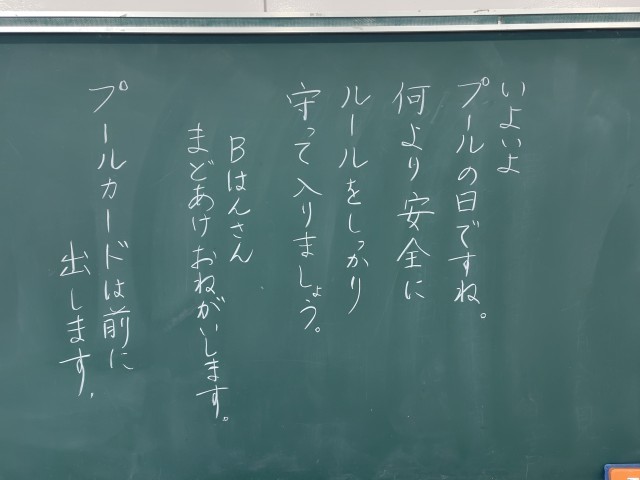 いよいよ
プールの日ですね。
何より安全に
ルールをしっかり
守って入りましょう。
Bはんさん
まどあけおねがいします。
プールカードは前に
出します.